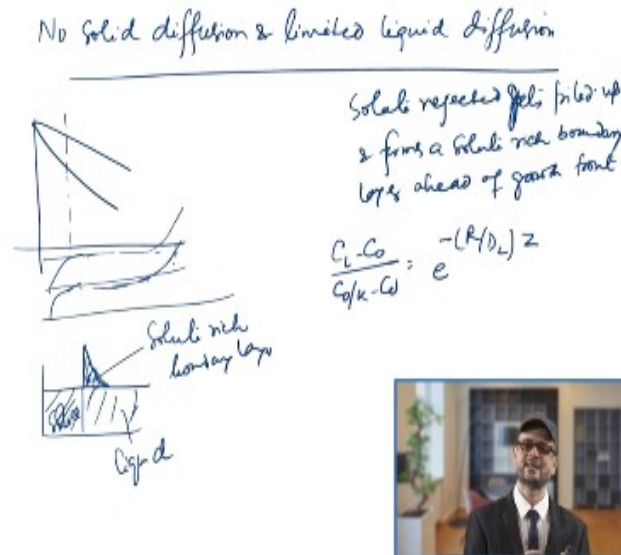 No solid diffusion & limited liquid diffusion
Solute rejected gets piled up
& forms a solute rich boundary
layer ahead of growth front
C_L-C_0 / C_0/K-C_0 = e^-(R/D_L) Z
Solute rich
boundary layer
liquid